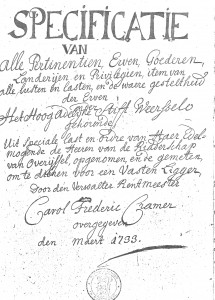 SPECIFICATIE
VAN
alle Pertinentien, Erven, Goederen,
Landerijen en Privilegien, item van
alle lusten en lasten, en de waare gesteltheid
der Erven
onder
Het Hoog Adelyke Stift Weerselo
gehorende
Uit speciale last en Ordre van Haer Edel-
mogende de Heeren van de Ridderschap
van Overijssel, opgenomen en de gemeten,
om te dienen voor een Vasten Ligger,
Door den Verwalter Rentmeester
Carol Frederic Cramer
overgegeven
den Meert 1733.